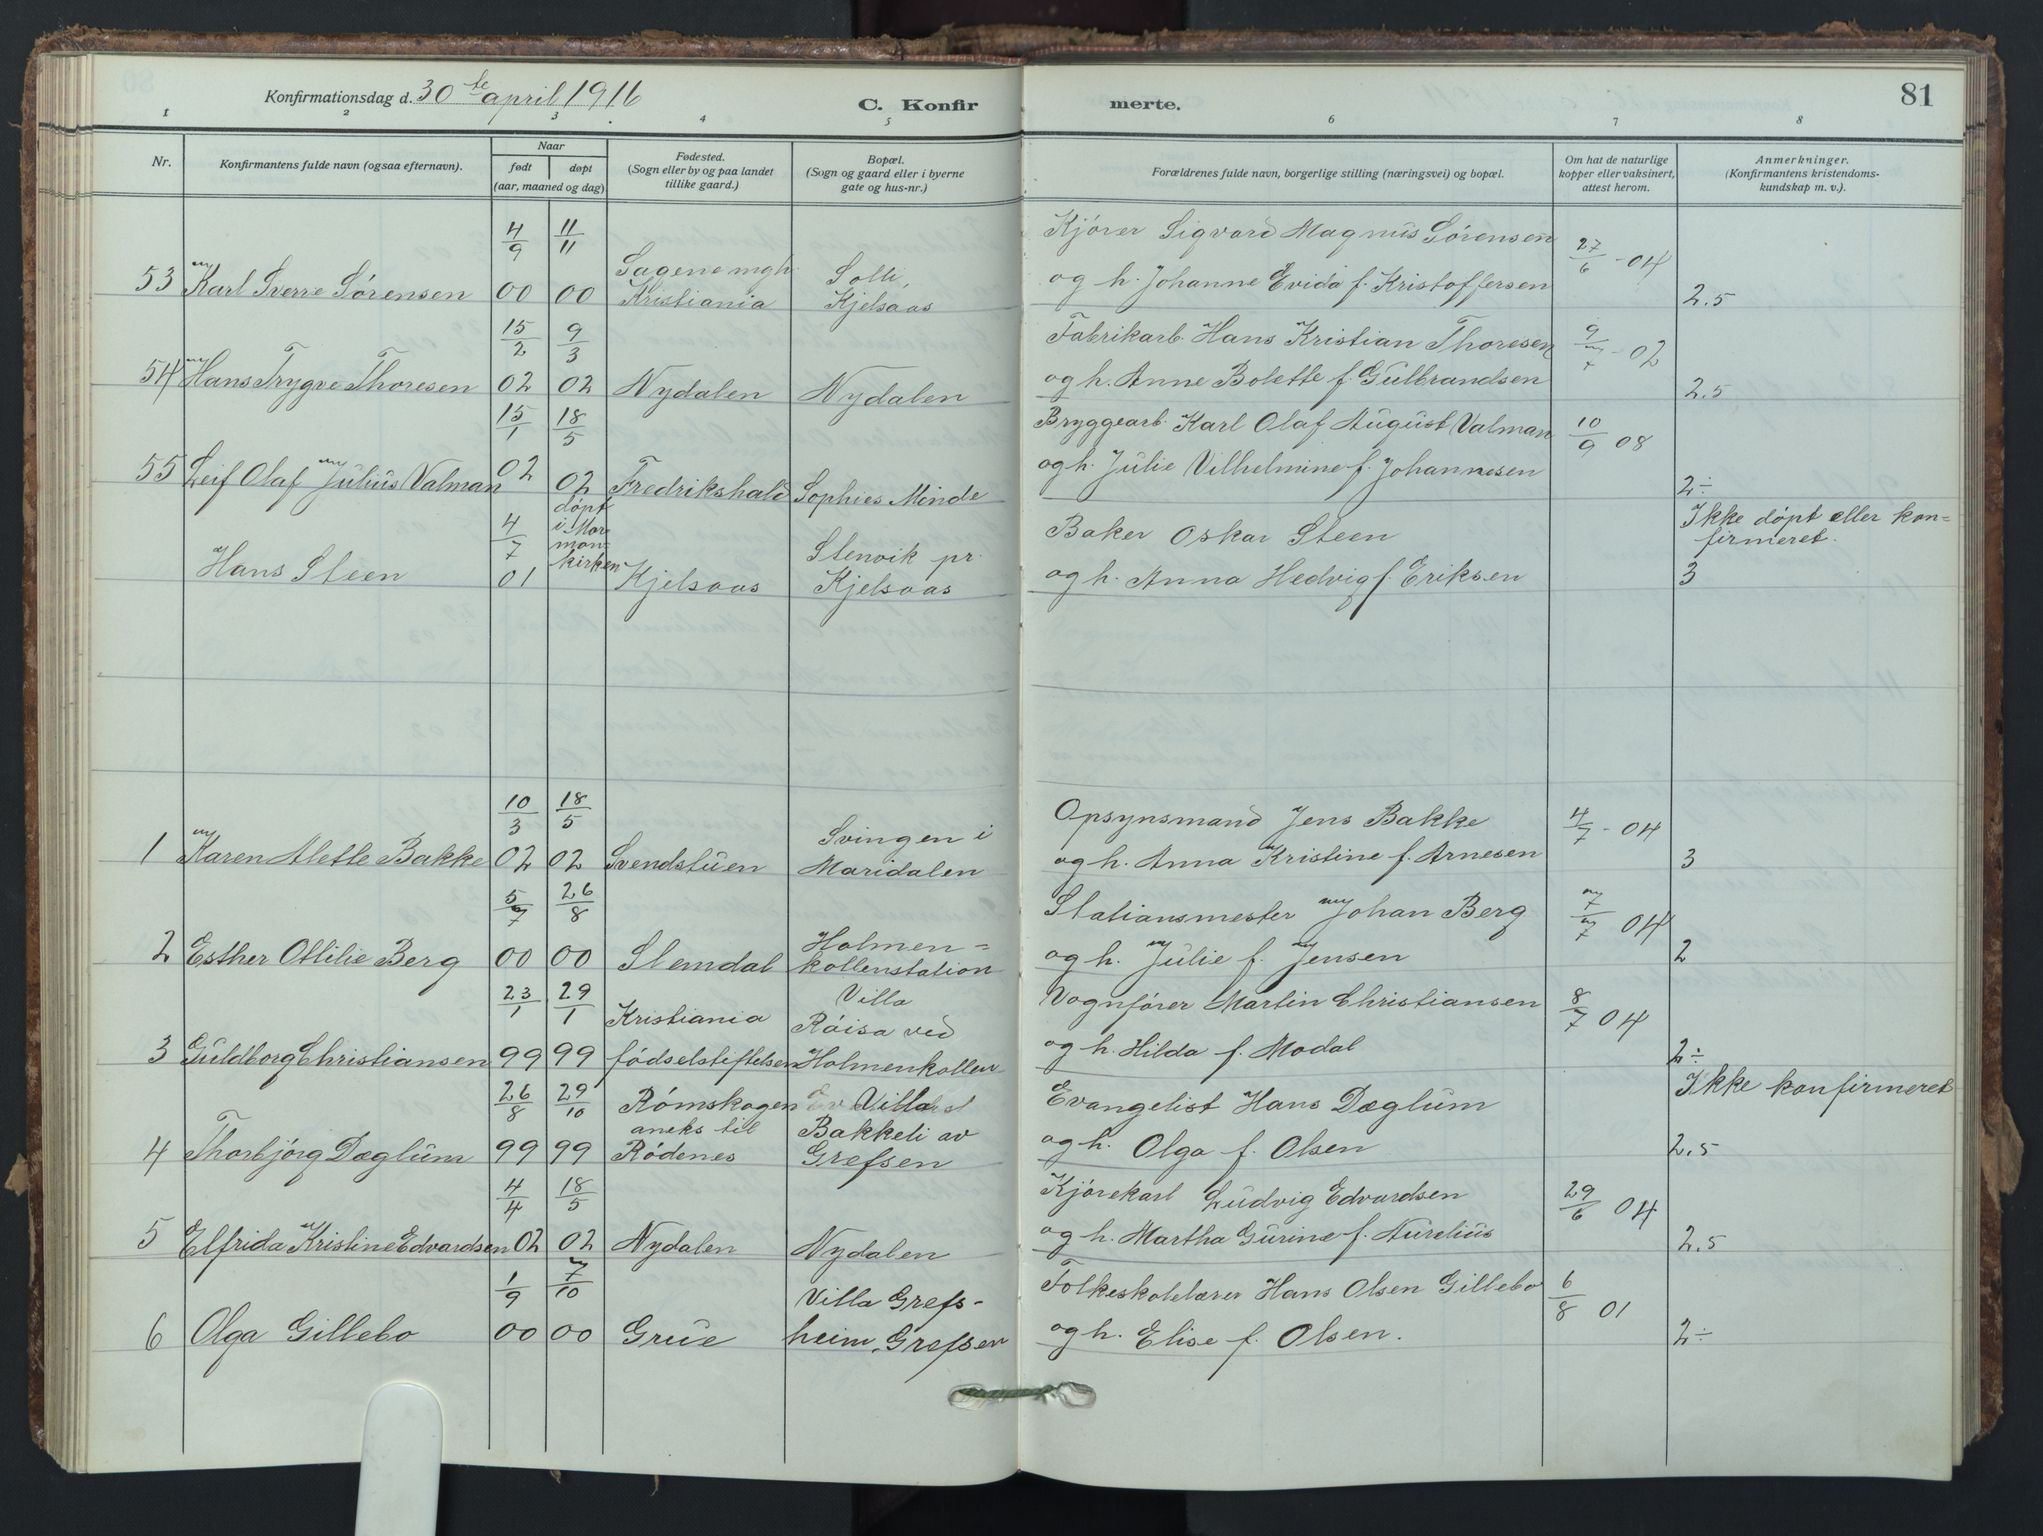 Konfirmationsdag d. 30te april 1916
C. Konfir
merte.
81
1 2 3 4 5 6 7 8
Nr.
Konfirmantens fulde navn (ogsaa efternavn).
Naar
født
døpt
(aar, maaned og dag)
Fødested.
(Sogn eller by og paa landet
tillike gaard.)
Bopæl.
(Sogn og gaard eller i byerne
gate og hus-nr.)
Forældrenes fulde navn, borgerlige stilling (næringsvei) og bopæl.
Om hat de naturlige
kopper eller vaksinert,
attest herom.
Anmerkninger.
(Konfirmantens kristendoms-
kundskap m. v.).
53 Karl Sverre Sörensen
4/9 00
11/11 00
Sagene mgh.
Kristiania
Solli,
Kjelsaas
Kjörer Sigvard Magnus Sörensen
og h. Johanne Evida f. Kristoffersen
27/6 - 04
2.5
54 Hans Trygve Thoresen
15/2 02
9/3 02
Nydalen
Nydalen
Fabrikarb. Hans Kristian Thoresen
og h. Anne Bolette f. Gulbrandsen
9/7 - 02
2.5
55 Leif Olaf Julius Valman
15/1 02
18/5 02
Fredrikshald
Sophies Minde
Bryggearb. Karl Olaf August Valman
og h. Julie Vilhelmine f. Johannesen
10/9 08
2÷
Hans Steen
4/7 01
döpt
i Mor
mon-
kirken
Kjelsaas
Stenvik pr.
Kjelsaas
Baker Oskar Steen
og h. Anna Hedvig f. Eriksen
Ikke döpt eller kon=
firmeret.
3
1 Karen Alette Bakke
10/3 02
18/5 02
Svendstuen
Svingen i
Maridalen
Opsynsmand Jens Bakke
og h. Anna Kristine f. Arnesen
4/7 - 04
3
2 Esther Ottilie Berg
5/7 00
26/8 00
Slemdal
Holmen=
kollenstation
Stationsmester Johan Berg
og h. Julie f. Jensen
7/7 04
2
3 Guldborg Christiansen
23/1 99
29/1 99
Kristiania
födselstiftelsen
Villa
Röisa ved
Holmenkollen
Vognförer Martin Christiansen
og h. Hilda f. Modal
8/7 04
2÷
4 Thorbjörg Dæglum
26/8 99
29/10 99
Römskogen
aneks til
Rödenes
Villa
Bakkeli av
Grefsen
Evangelist Hans Dæglum
og h. Olga f. Olsen
Ikke konfirmeret
2.5
5 Elfrida Kristine Edvardsen
4/4 02
18/5 02
Nydalen
Nydalen
Kjörekarl Ludvig Edvardsen
og h. Martha Gurine f. Aurelius
29/6 04
2.5
6 Olga Gillebo
1/9 00
7/10 00
Grue
Villa Grefs-
heim, Grefsen
Folkeskolelærer Hans Olsen Gillebo
og h. Elise f. Olsen.
6/8 01
2÷